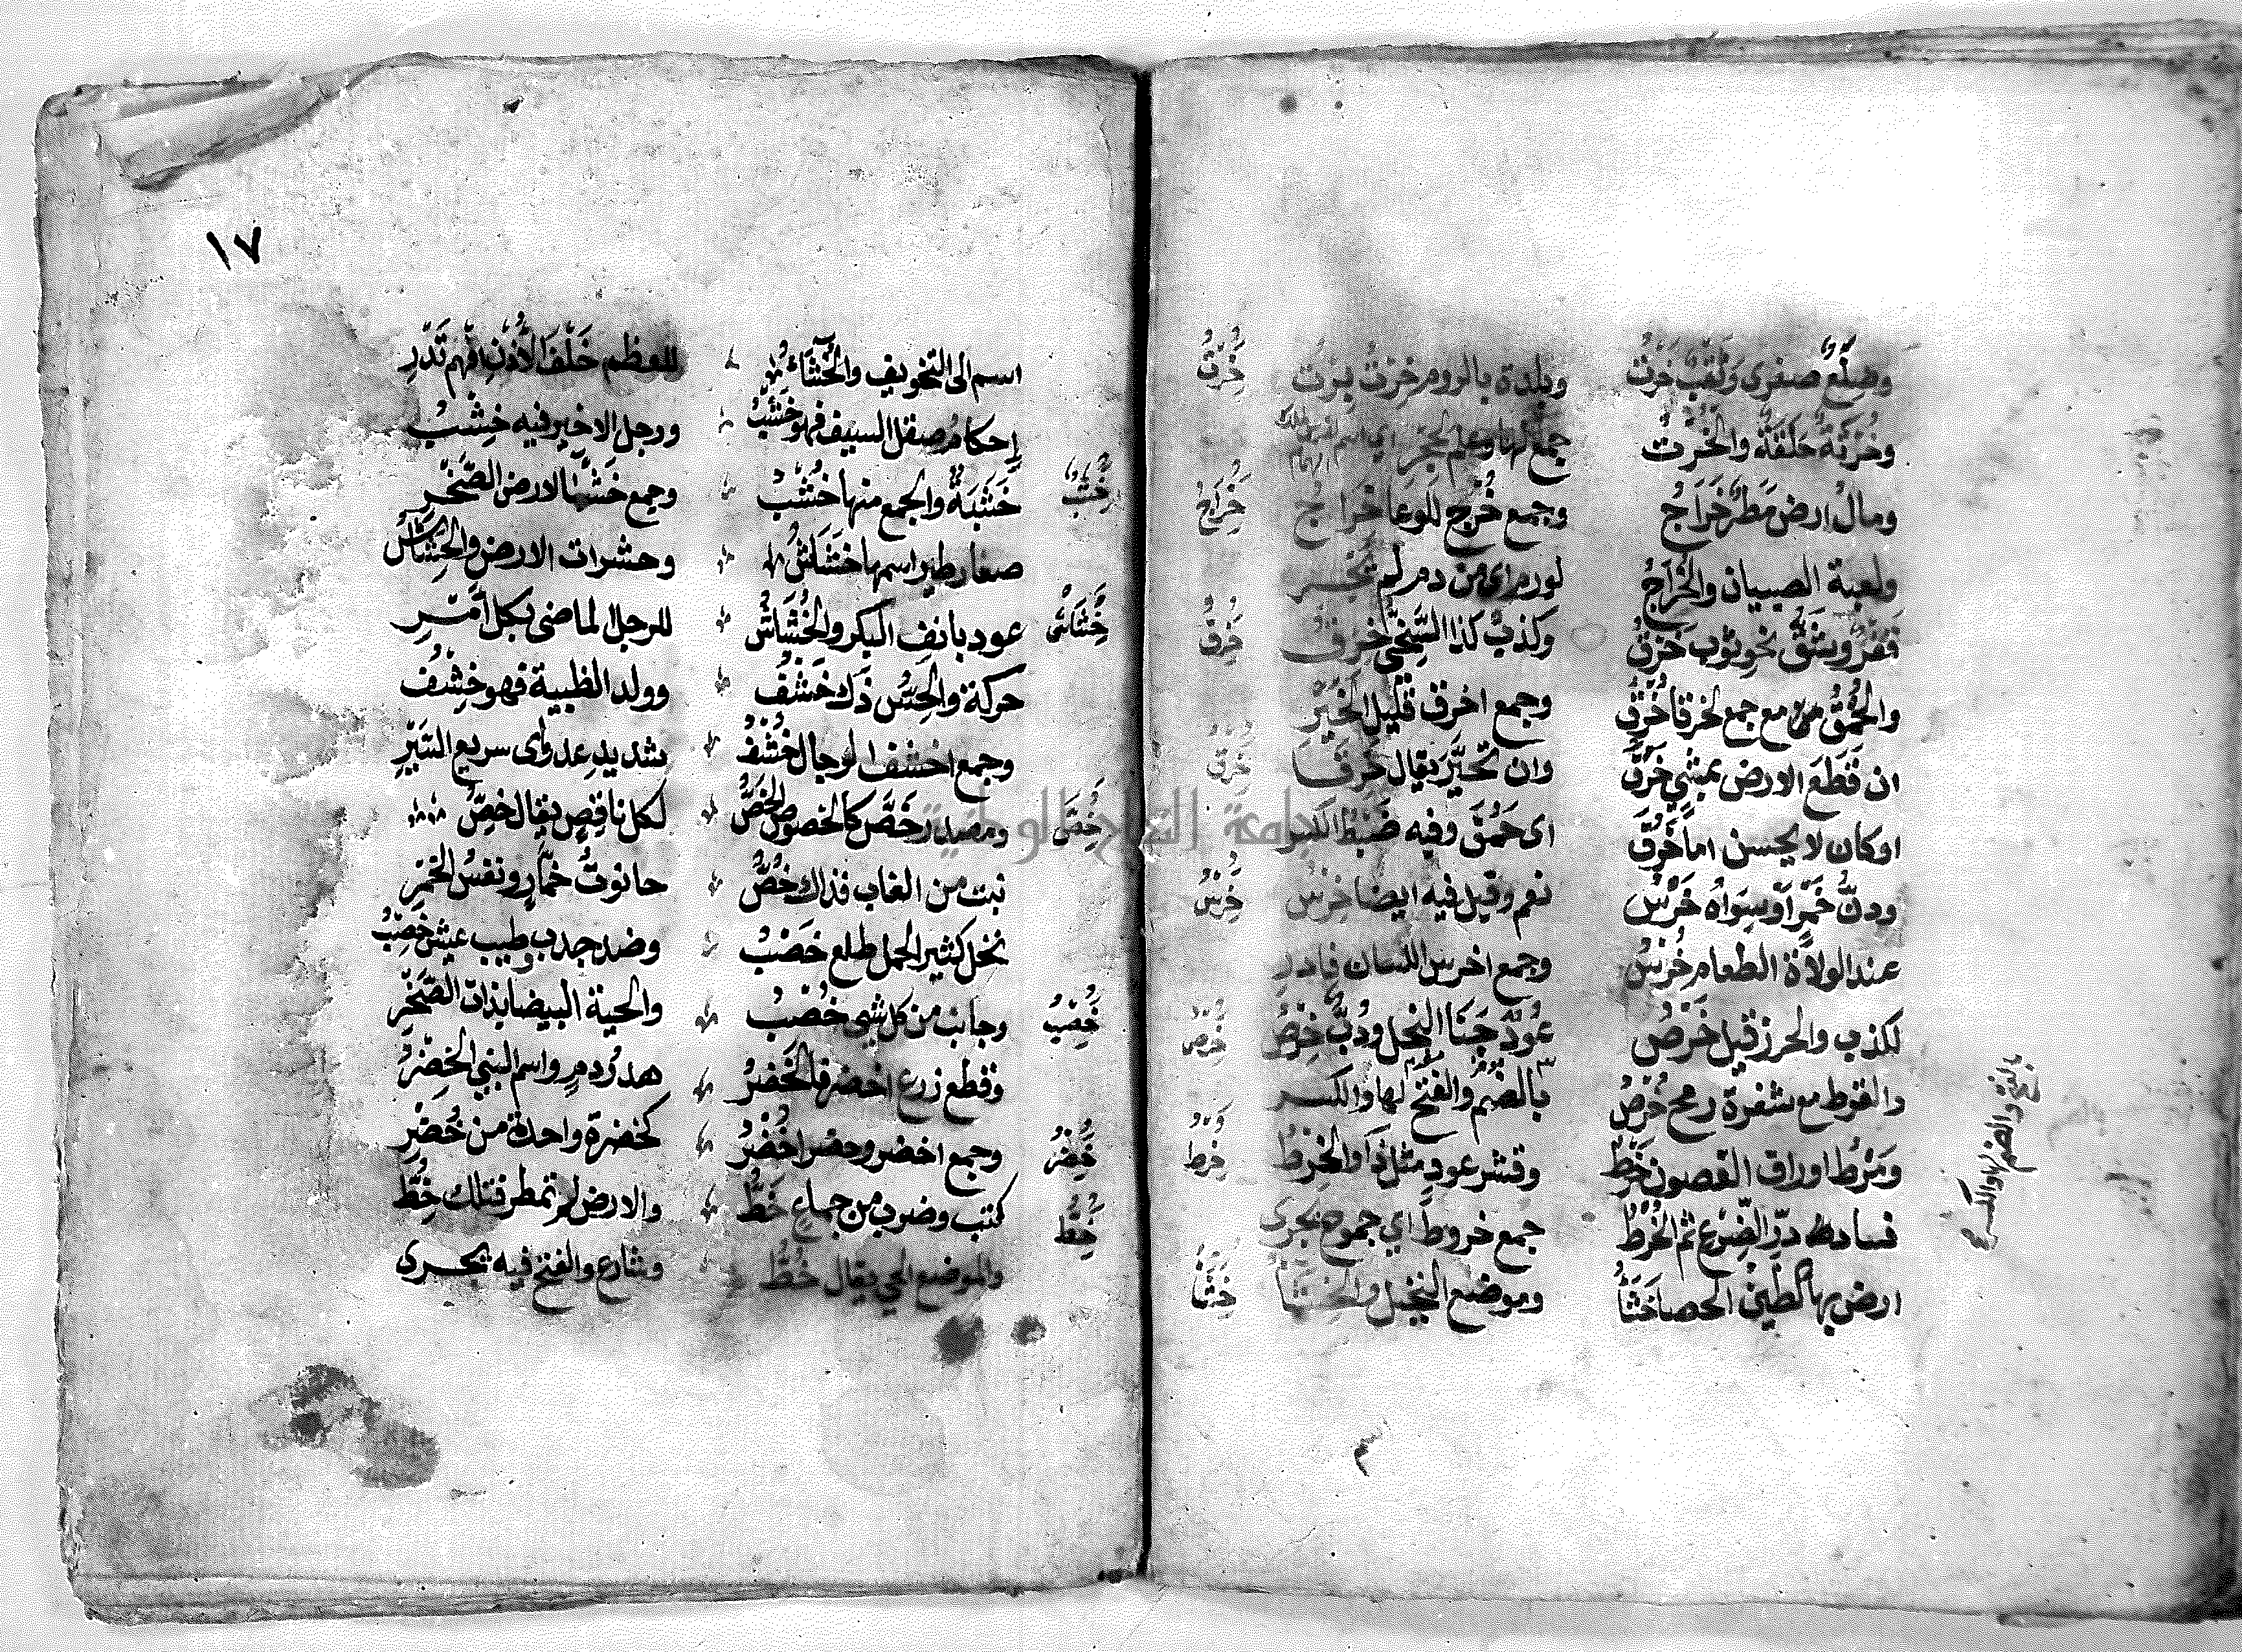 وضلع صغرى وثقب خرت وبلدة بالروم خرت برت خرت
وخرتة حلقة والخرت جمع لها وعلم لحجر
ومال ارض مطر خراج وجمع خرج للوعا خراج خراج
ولعبة الصبيان والخراج لورم اى من دم لم يجر
قفر وشق نحو ثوب خرق وكذب كذا السخى خرق خرق
والحمق مع جمع لخرقا خرق وجمع اخرق قليل الخير
ان قطع الارض بمشي خرق وان تحير يقال خرقا خرق
اوكان لا يحسن اما خرق اى حمق وفيه ضبط الكسر
ودن خمر او سواه خرس نعم وقيل فيه ايضا خرس خرس
عند الولادة الطعام خرس وجمع اخرس اللسان فادر
لكذب والحرز قيل خرص عود جنا النحل ودب خرص خرص
والقرط مع شفرة رمح خرص بالضم والفتح لها والكسر
ومرط اوراق الغصون خرط وقشر عود مثل ذا والخرط خرط
فساد در الضرع ثم الخرط جمع خروط اي جموح يجرى
ارض بها الطين الحصا خشا وموضع النخيل والخشا خشا
بالفتح والضم والكسر
١٧
اسم الى التخويف والخشاء للعظم خلف الاذن افهم تدر
احكام صقل السيف فهو خشب ورجل لا خير فيه خشب
خشب خشبة والجمع منها خشب وجمع خشبا الارض الصخر
صغار طير اسمها خشاش وحشرات الارض والخشاش
خشاش عود بانف البكر والخشاش للرجل الماضى بكل امر
حركة والحس ذاك خشف وولد الظبية فهو خشف
وجمع اخشف لرجال خشف شديد عدو اى سريع السير
خص ومصدر خص كالخصوص الخص لكل ناقص يقال خص
نبت من الغاب فذاك خص حانوت خمار ونفس الخمر
نخل كثير الحمل طلع خضب وضد جدب وطيب عيش خصب
خصب وجانب من كل شي خصب والحية البيضا بذات الصخر
وقطع زرع اخضر فالخضر هدر دم واسم النبي الخضر
خضر وجمع اخضر وخضرا خضر كخضرة واحدة من خضر
خط كتب وضرب من جماع خط والارض لم تمطر فتلك خط
والموضع الحي يقال خط وشارع والفتح فيه يجرى